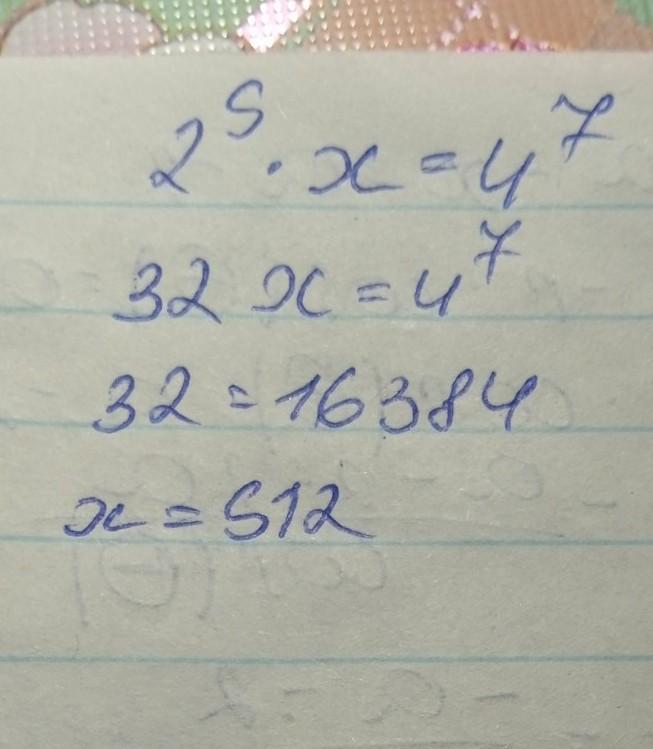 2⁵ · x = 4⁷
32 x = 4⁷
32 = 16384
x = 512